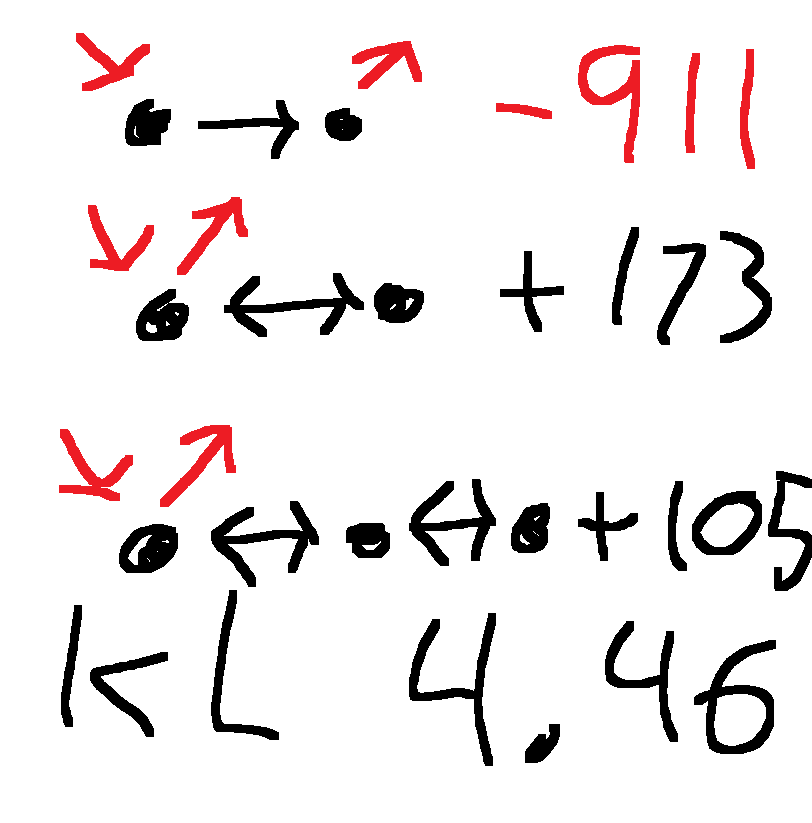 -911
+173
+105
KL 4.46